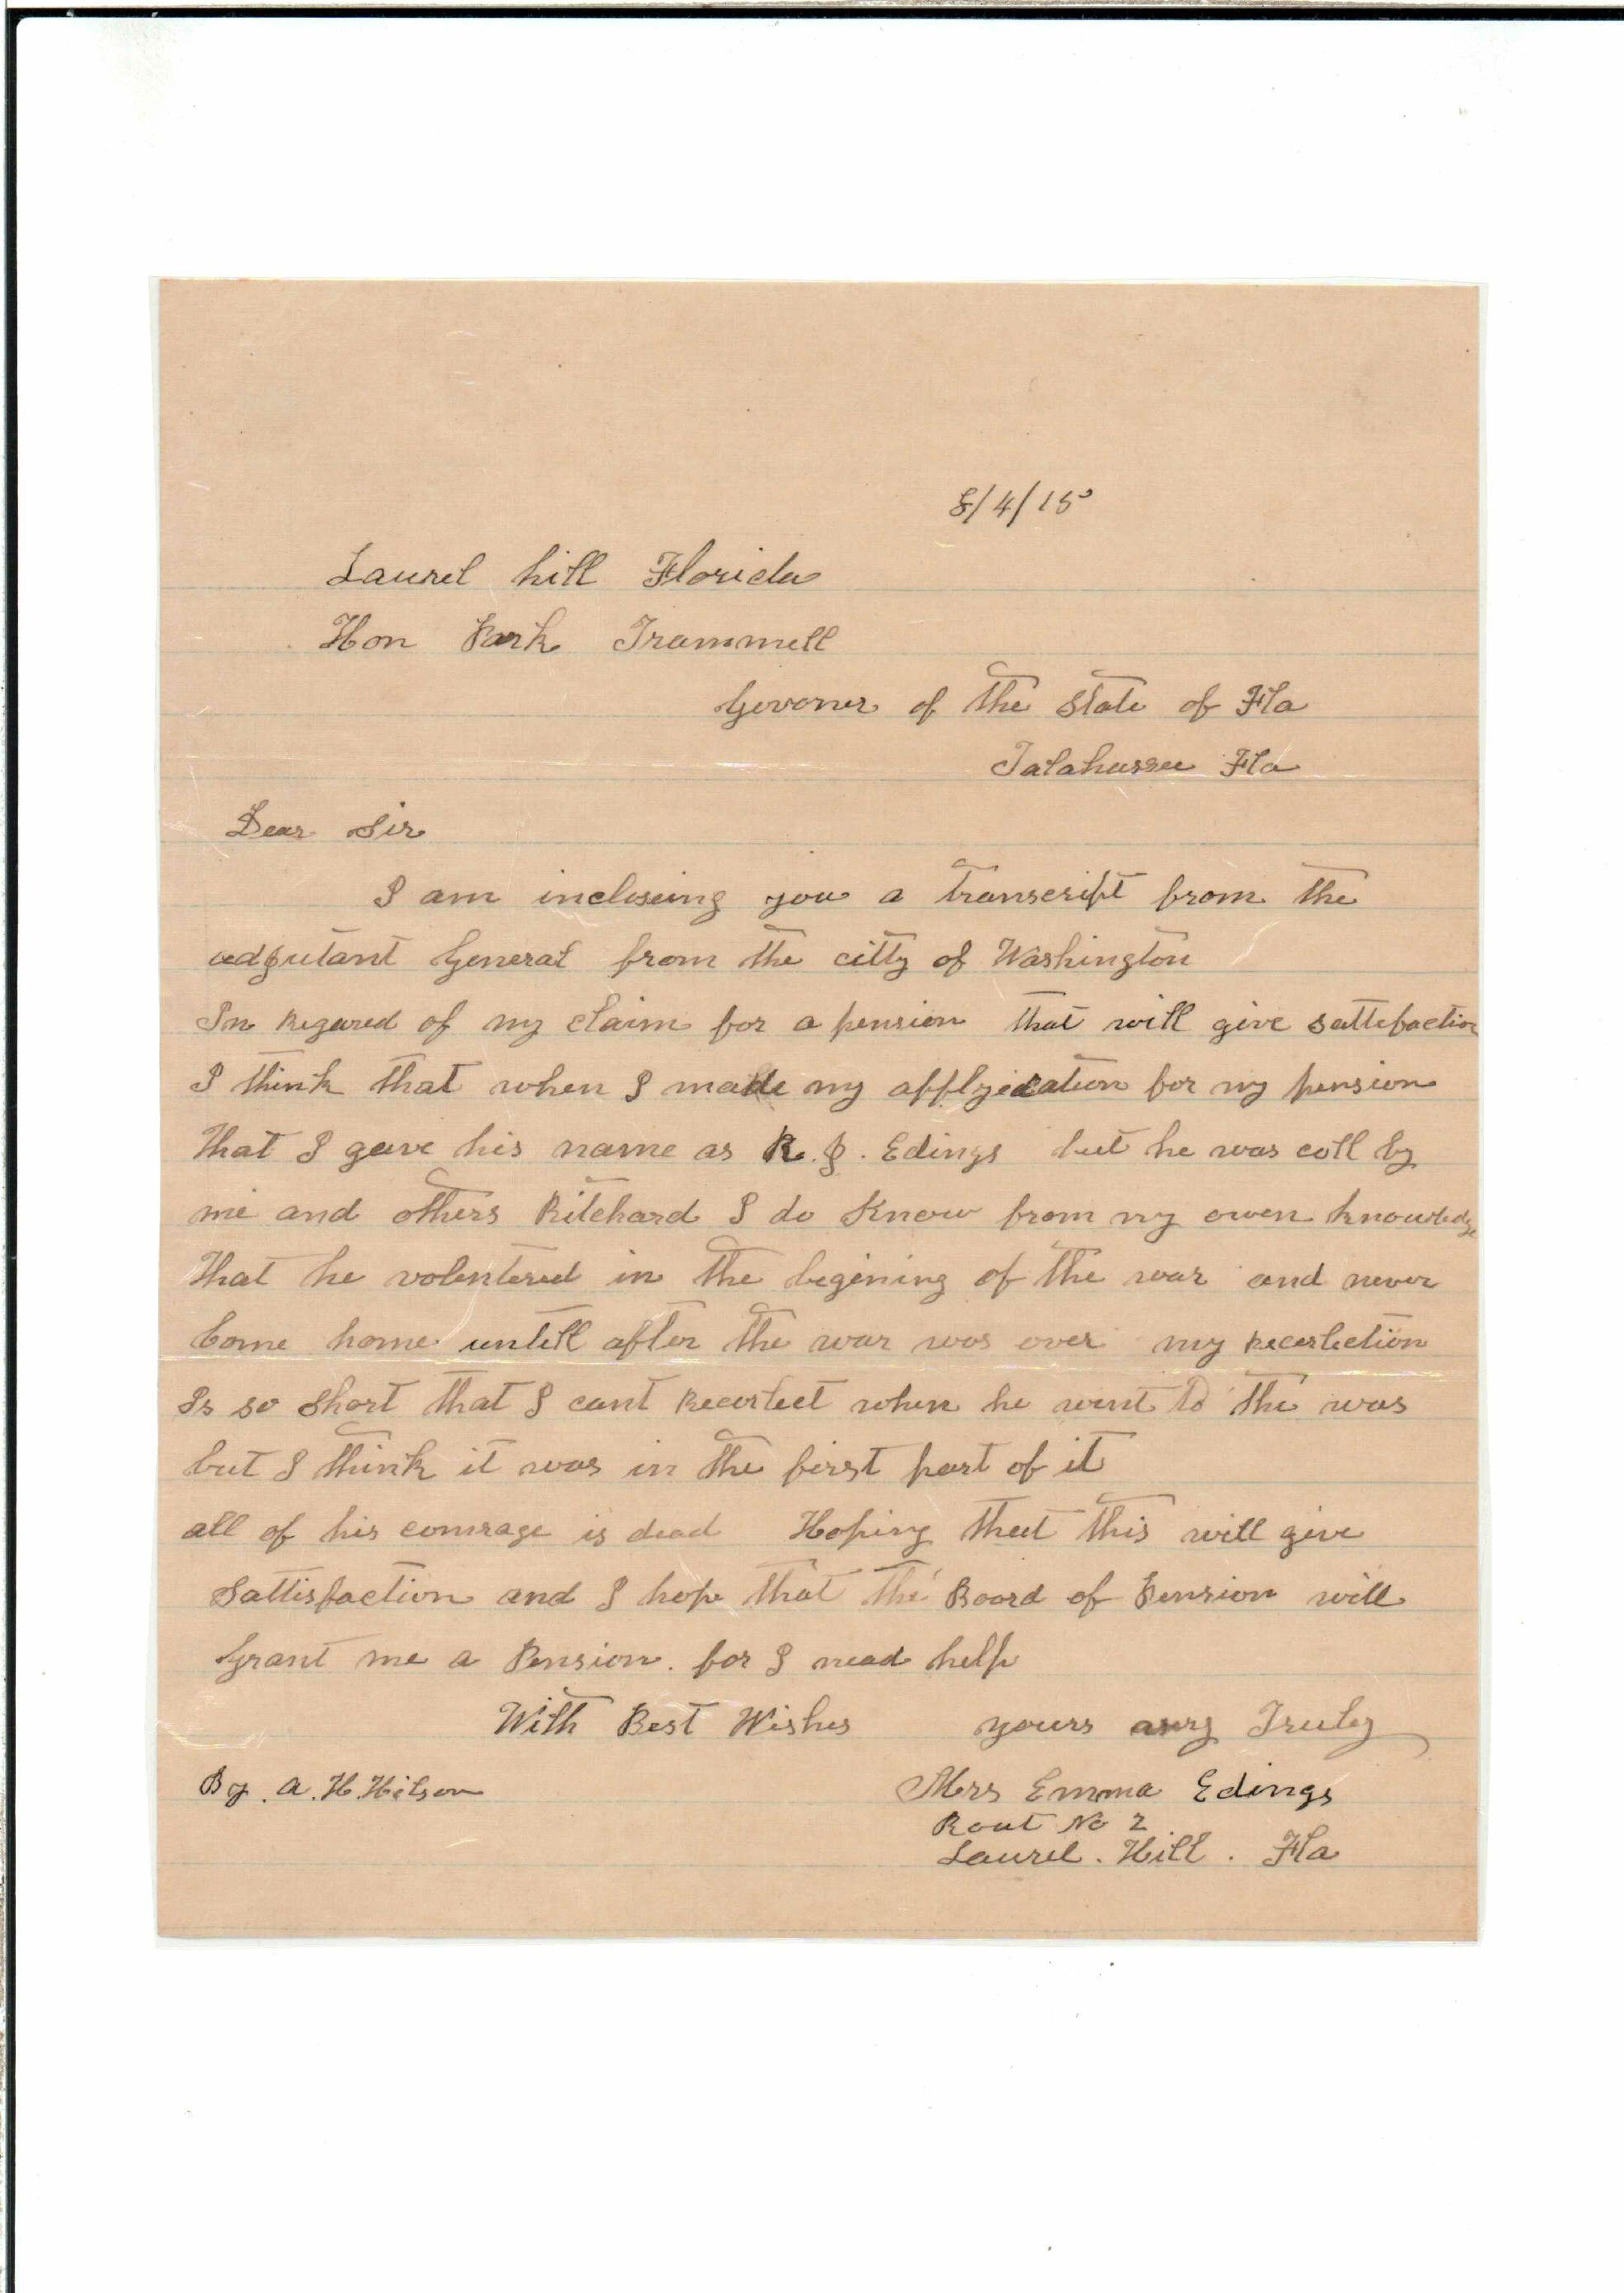 8/4/15
Laurel hill Florida
Hon Park Trammell
Govoner of the State of Fla
Talahassee Fla
Dear Sir
I am incloseing you a transcript from the
adjutant General from the citty of Washington
In Regared of my claim for a pension that will give sattefaction
I think that when I made my applyication for my pension
that I gave his name as R. J. Edings but he was coll by
me and others Ritchard I do Know from my owen knowledge
that he volentered in the begining of the war and never
Come home untill after the war was over my Recerlection
Is so short that I cant Recerlect when he went to the was
but I think it was in the first part of it
all of his comrage is dead Hoping that this will give
Sattisfaction and I hope that the Board of Pension will
Grant me a Pension. for I nead help
With Best Wishes yours Truley
By. A. H. Hilson Mrs Emma Edings
Rout No 2
Laurel. Hill. Fla